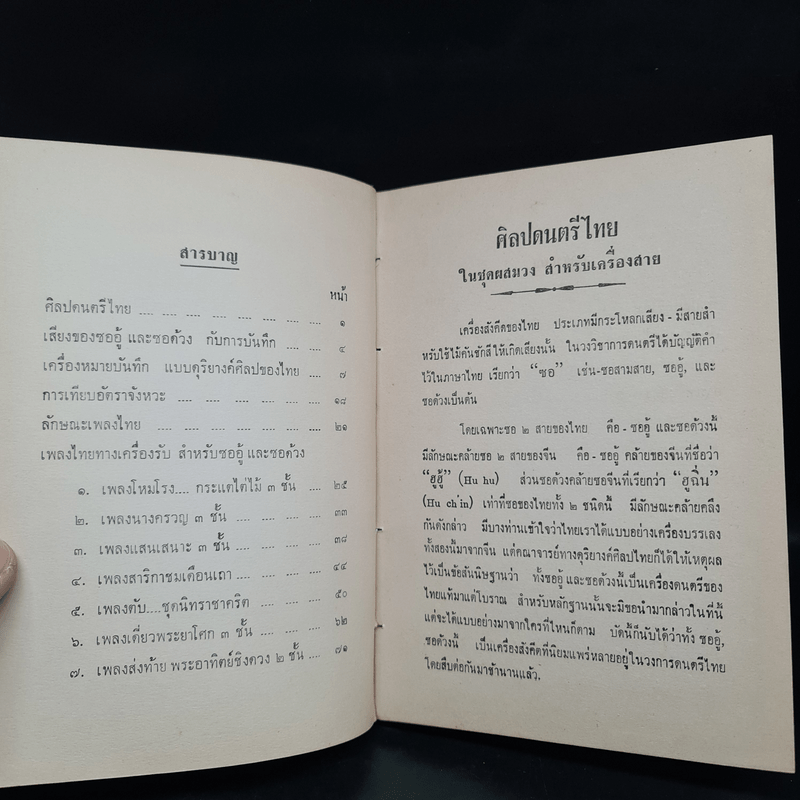 สารบาญ
หน้า
ศิลปดนตรีไทย .... .... .... .... .... .... .... .... ๑
เสียงของซออู้ และซอด้วง กับการบันทึก .... .... ๔
เครื่องหมายบันทึก แบบดุริยางค์ศิลปของไทย .... ๗
การเทียบอัตราจังหวะ .... .... .... .... .... .... ๑๘
ลักษณะเพลงไทย .... .... .... .... .... .... .... ๒๑
เพลงไทยทางเครื่องรับ สำหรับซออู้ และซอด้วง
๑. เพลงโหมโรง.... กระแตไต่ไม้ ๓ ชั้น .... ๒๕
๒. เพลงนางครวญ ๓ ชั้น .... .... .... ๓๓
๓. เพลงแสนเสนาะ ๓ ชั้น .... .... .... ๓๘
๔. เพลงสาริกาชมเดือนเถา .... .... .... ๔๔
๕. เพลงตับ....ชุดนิทราชาคริต .... .... .... ๕๐
๖. เพลงเดี่ยวพระยาโศก ๓ ชั้น .... .... .... ๖๒
๗. เพลงส่งท้าย พระอาทิตย์ชิงดวง ๒ ชั้น .... ๗๑
ศิลปดนตรีไทย
ในชุดผสมวง สำหรับเครื่องสาย
เครื่องสังคีตของไทย ประเภทมีกระโหลกเสียง - มีสายสำ
หรับใช้ไม้คันชักสีให้เกิดเสียงนั้น ในวงวิชาการดนตรีได้บัญญัติคำ
ไว้ในภาษาไทย เรียกว่า “ซอ” เช่น-ซอสามสาย, ซออู้, และ
ซอด้วงเป็นต้น
โดยเฉพาะซอ ๒ สายของไทย คือ - ซออู้ และซอด้วงนี้
มีลักษณะคล้ายซอ ๒ สายของจีน คือ - ซออู้ คล้ายของจีนที่ชื่อว่า
“ฮูฮู้” (Hu hu) ส่วนซอด้วงคล้ายซอจีนที่เรียกว่า “ฮูฉิ่น”
(Hu ch'in) เท่าที่ซอของไทยทั้ง ๒ ชนิดนี้ มีลักษณะคล้ายคลึง
กันดังกล่าว มีบางท่านเข้าใจว่าไทยเราได้แบบอย่างเครื่องบรรเลง
ทั้งสองนี้มาจากจีน แต่คณาจารย์ทางดุริยางค์ศิลปไทยก็ได้ให้เหตุผล
ไว้เป็นข้อสันนิษฐานว่า ทั้งซออู้ และซอด้วงนี้เป็นเครื่องดนตรีของ
ไทยแท้มาแต่โบราณ สำหรับหลักฐานนั้นจะมิขอนำมากล่าวในที่นี้
แต่จะได้แบบอย่างมาจากใครที่ไหนก็ตาม บัดนี้ก็นับได้ว่าทั้ง ซออู้,
ซอด้วงนี้ เป็นเครื่องสังคีตที่นิยมแพร่หลายอยู่ในวงการดนตรีไทย
โดยสืบต่อกันมาช้านานแล้ว.